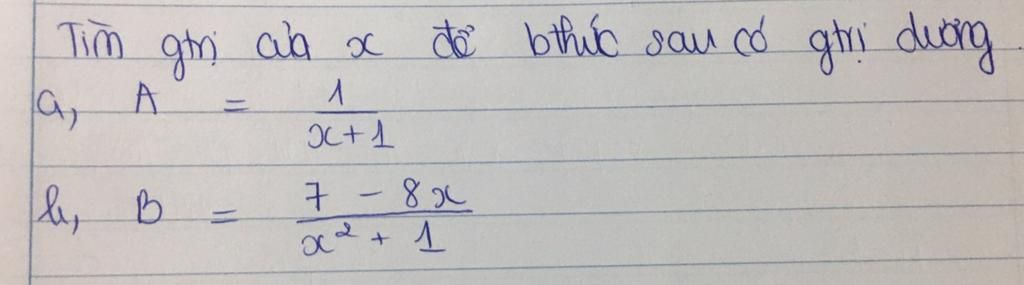 Tìm gtrị của x để bthức sau có gtrị dương.
a, A = 1/(x+1)
b, B = (7 - 8x)/(x² + 1)